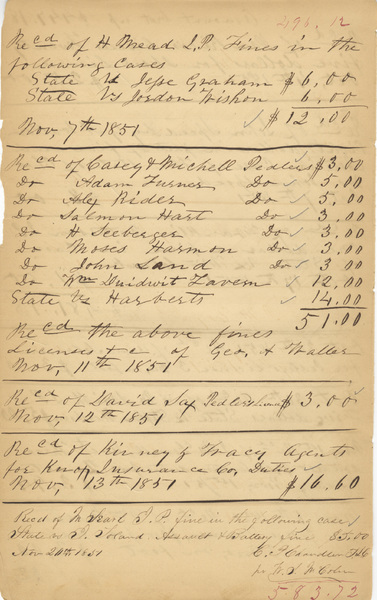 496.12
Recd of H Mead J.P. Fines in the
following Cases
State Vs Jesse Graham $6.00
State Vs Jordon Wishon 6.00
Nov, 7th 1851 $12.00
Recd of Casey & Michell Pedlers $3.00
Do Adam Turner Do 5.00
Do Alex Rider Do 5.00
Do Salmon Hart Do 3.00
Do H Seeberger Do 3.00
Do Moses Harmon Do 3.00
Do John Land Do 3.00
Do Wm 12.00
State Vs Harberts 14.00
51.00
Recd the above fines
Licenses &c of Geo. A Waller
Nov, 11th 1851
Recd of David Pedlers $3.00
Nov, 12th 1851
Recd of Kinney & Tracy Agents
for Knox Insurance Co, Duties
Nov, 13th 1851 $16.60
Recd of M J.P. fine in the following case
State vs Assault & Battery fine $5.00
Nov 20th 1851 E. P. Chandler
pr
583.72